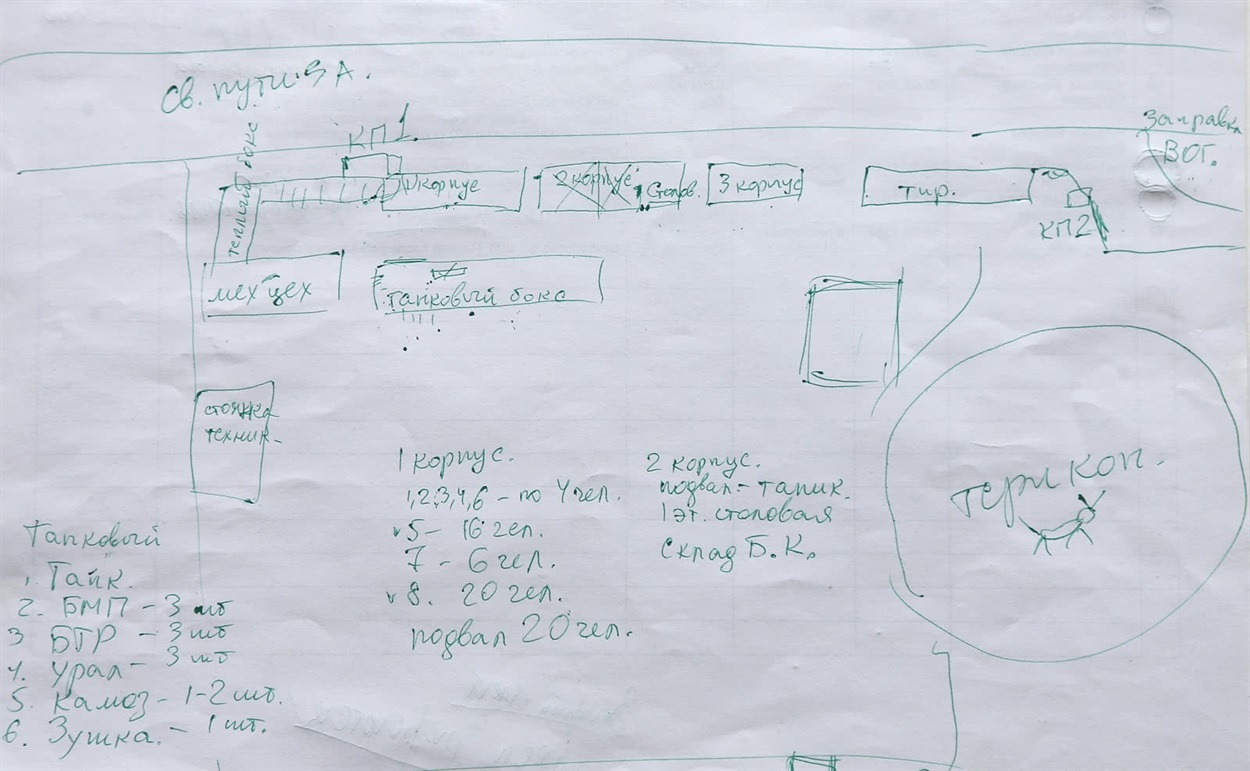 Св. пути 3 А.
Заправка
ВОГ.
КП1.
теплый бокс
1 корпус
2 корпус
Столов.
3 корпус
тир.
КП2
мех цех
танковый бокс
стоянка
техник
терикон.
1 корпус.
1,2,3,4,6 – по 4 чел.
v 5 – 16 чел.
7 – 6 чел.
v 8. 20 чел.
подвал 20 чел.
2 корпус.
подвал – тапик.
1 эт. столовая
склад Б.К.
Танковый
1. Танк.
2. БМП – 3 шт
3 БТР – 3 шт
4. Урал – 3 шт
5. Камаз – 1-2 шт.
6. Зушка. – 1 шт.